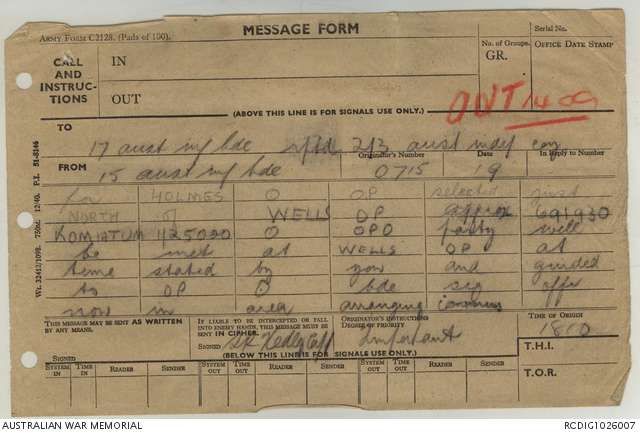 ARMY FORM C2128. (Pads of 100).
MESSAGE FORM
Serial No.
CALL AND INSTRUC- TIONS
IN
No. of Groups.
GR.
OFFICE DATE STAMP
OUT
(ABOVE THIS LINE IS FOR SIGNALS USE ONLY.)
OUT 1409
TO
17 aust inf bde rptd 2/3 aust indep coy
FROM
Originator's Number
Date
In Reply to Number
15 aust inf bde 0715 19
for HOLMES O OP selected just
NORTH of WELLS OP approx 691930
KOMIATUM 425020 O OPO party will
be met at WELLS OP at
time stated by you and guided
to OP O bde sig offr
now in area arranging comms
THIS MESSAGE MAY BE SENT AS WRITTEN BY ANY MEANS.
IF LIABLE TO BE INTERCEPTED OR FALL INTO ENEMY HANDS, THIS MESSAGE MUST BE SENT IN CIPHER.
ORIGINATOR'S INSTRUCTIONS DEGREE OF PRIORITY
TIME OF ORIGIN
1810
important
SIGNED
SIGNED
(BELOW THIS LINE IS FOR SIGNALS USE ONLY.)
T.H.I.
SYSTEM IN
TIME IN
READER
SENDER
SYSTEM OUT
TIME OUT
READER
SENDER
SYSTEM OUT
TIME OUT
READER
SENDER
T.O.R.
AUSTRALIAN WAR MEMORIAL
RCDIG1026007